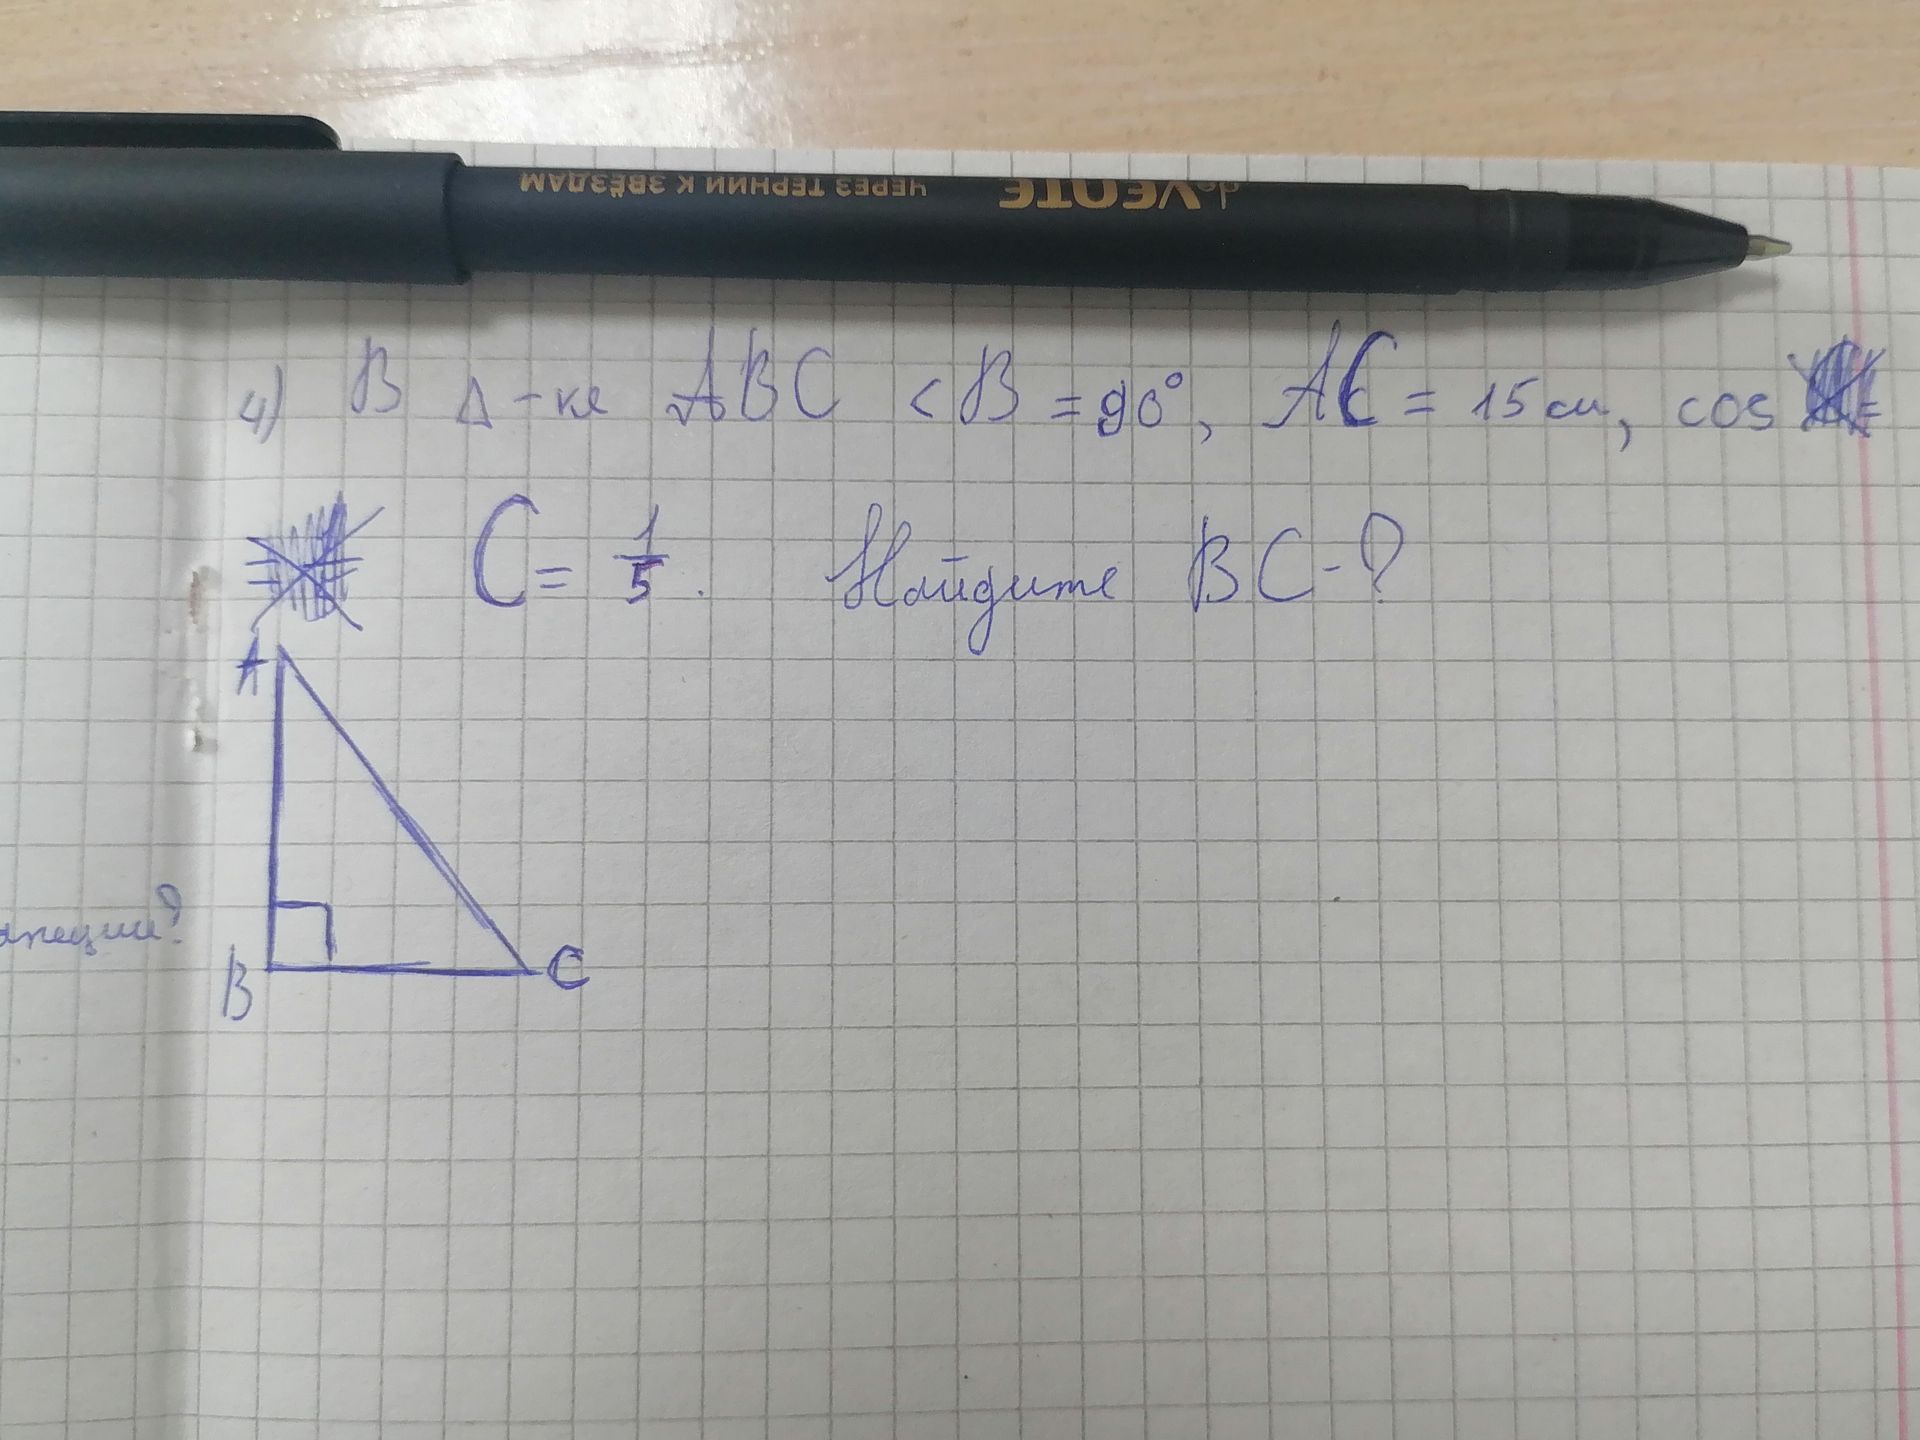 deVENTE ЧЕРЕЗ ТЕРНИИ К ЗВЁЗДАМ
4) В Δ-ке ABC <B = 90°, AC = 15 см, cos
C = 1/5. Найдите BC-?
A
B
C